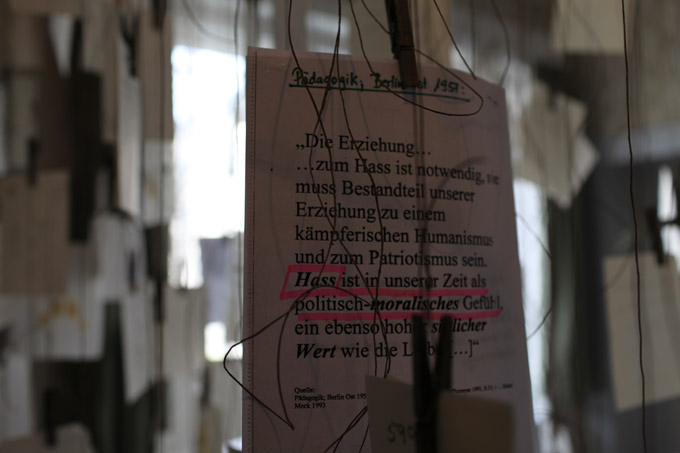 Pädagogik, Berlin Ost 1951:
„Die Erziehung…
…zum Hass ist notwendig,
muss Bestandteil unserer
Erziehung zu einem
kämpferischen Humanismus
und zum Patriotismus sein.
Hass ist in unserer Zeit als
politisch-moralisches Gefühl,
ein ebenso hoher sittlicher
Wert wie die Liebe […]“
Quelle:
Pädagogik; Berlin Ost 195
Merk 1993
590